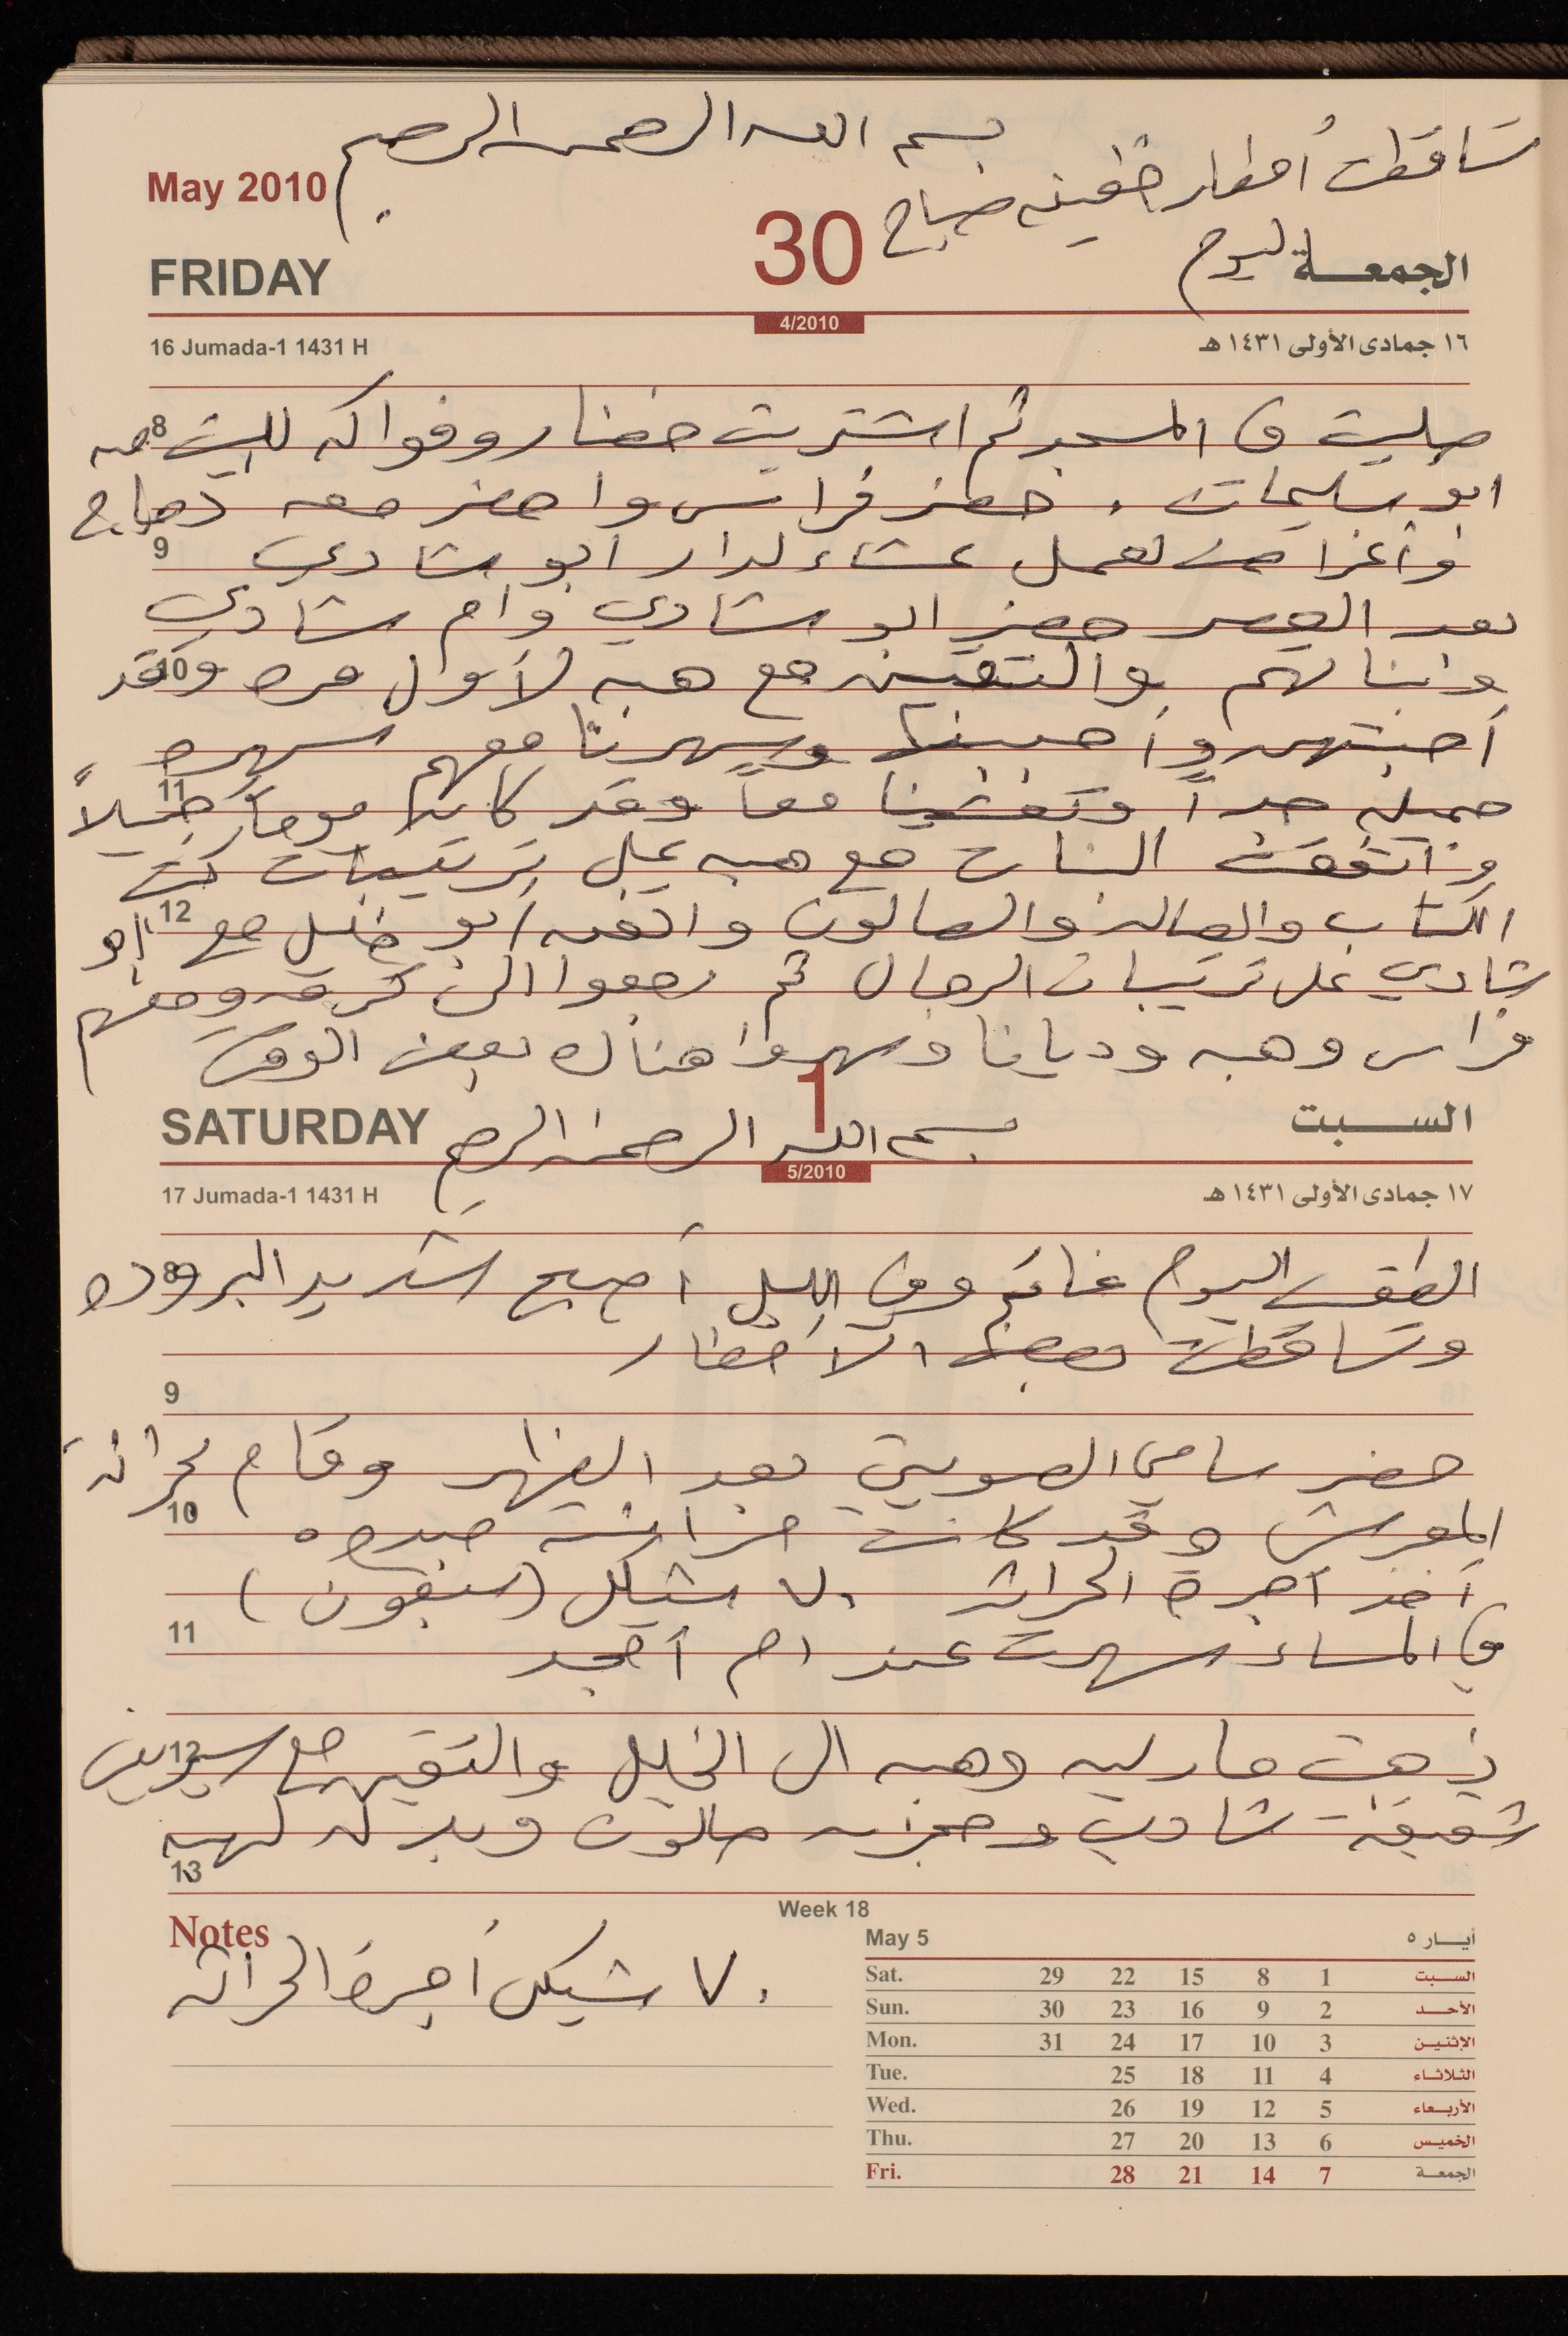 بسم الله الرحمن الرحيم
تساقطت أمطار خفيفه صباح
اليوم
May 2010
30
FRIDAY
الجمعة
4/2010
16 Jumada-1 1431 H
١٦ جمادى الأولى ١٤٣١ هـ
8
صليت في المسجد ثم اشتريت خضار وفواكه للبيت من
ابو سليمان . حضر فراس واحضر معه دجاج
9
وأغراض لعمل عشاء لدار ابو شادي
بعد العصر حضر ابو شادي وام شادي
10
وابنائهم والتقين مع هبه لأول مره وقد
أحبتهم وأحبينها وسهرنا معهم سهره
11
جميله جداً وتعشينا معاً وقد كان يوماً جميلاً
واتفقت البنات مع هبه على ترتيبات كتب
12
الكتاب والصاله والصالون واتفق ابو خليل مع ابو
شادي على ترتيبات الرجال ثم رجعوا الى ومعهم
فراس وهبه وديانا وسهروا هناك بعض الوقت
SATURDAY
1
السبت
بسم الله الرحمن الرحيم
5/2010
17 Jumada-1 1431 H
١٧ جمادى الأولى ١٤٣١ هـ
8
الطقس اليوم غائم وفي الليل أصبح شديد البروده
وتساقطت بعض الأمطار
9
حضر سامي الصويتي بعد الظهر وقام بحراثة
10
المغرس وقد كانت حراثته جيده
أخذ أجرة الحراثه ٧٠ شيكل (سبعون)
11
في المساء سهرت عند ام أمجد
12
ذهبت ماريه وهبه الى الخليل والتقين مع سيرين
شقيقة شادي وحجزن صالون وبدله لهبه
13
Notes
٧٠ شيكل أجرة الحراثه
Week 18
May 5
أيـار ٥
Sat. 29 22 15 8 1 السبت
Sun. 30 23 16 9 2 الأحد
Mon. 31 24 17 10 3 الإثنين
Tue. 25 18 11 4 الثلاثاء
Wed. 26 19 12 5 الأربعاء
Thu. 27 20 13 6 الخميس
Fri. 28 21 14 7 الجمعة